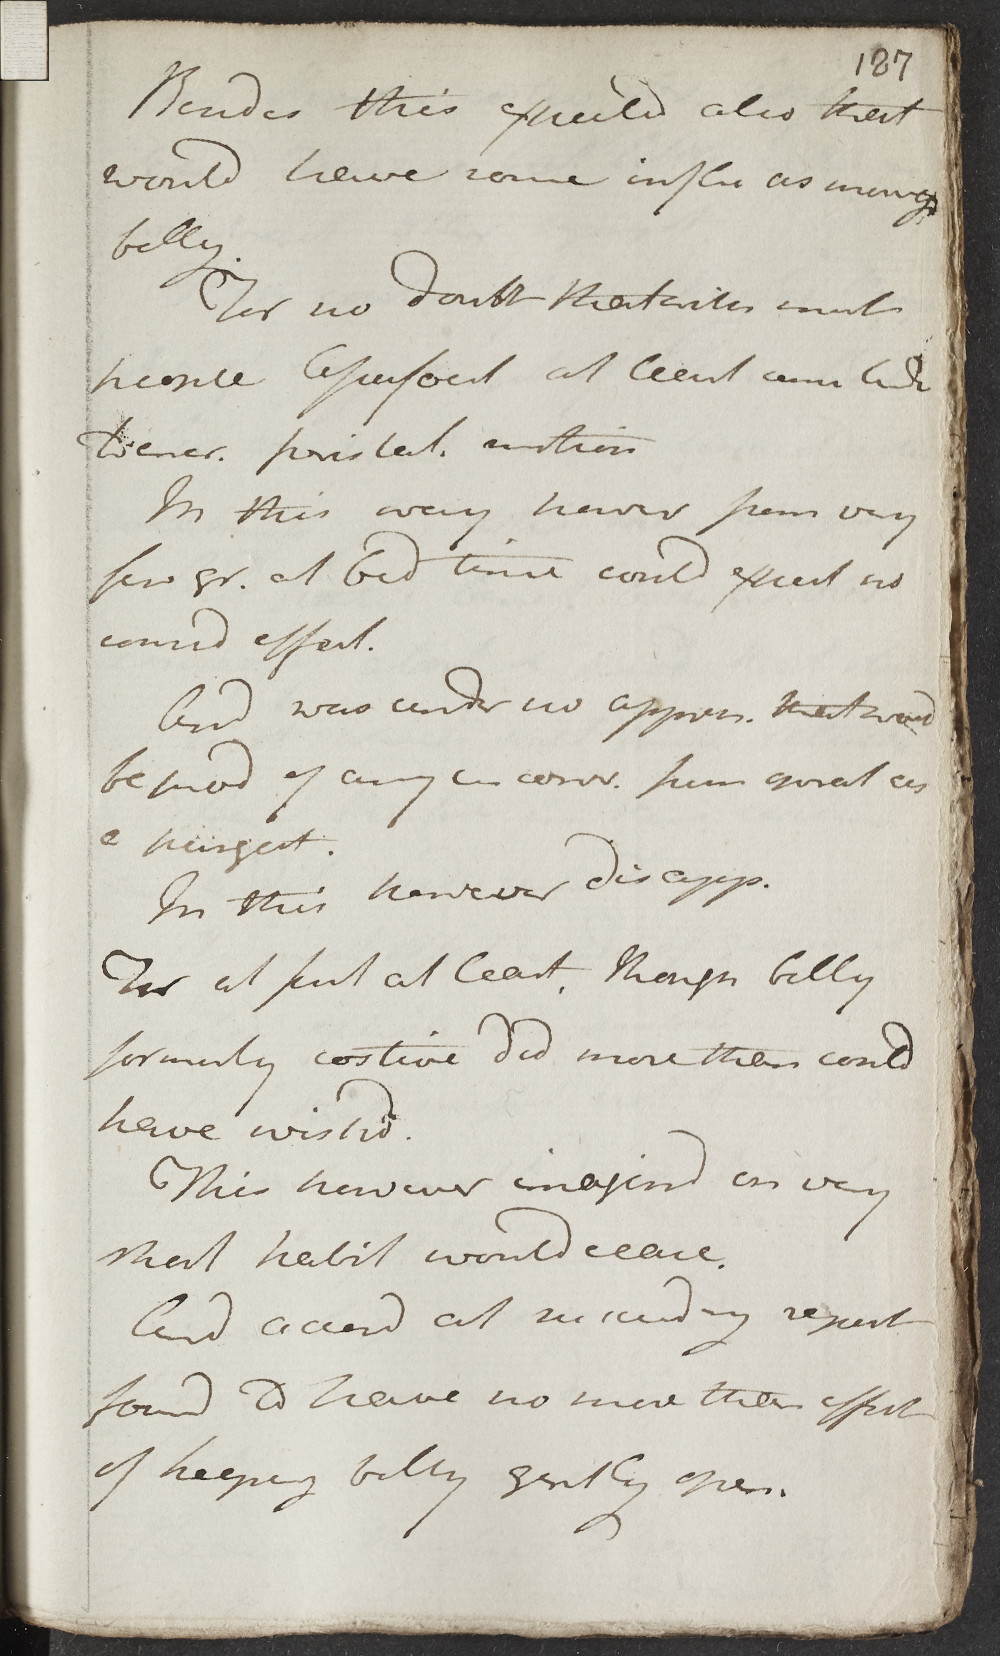 187
Besides this expected also that
would have some influ as moving
belly.
For no doubt that with most
people at least
to encr. peristal. motion
In this way however from very
few gr. at bed time could expect no
consid effect.
And was under no appreh. that would
be prod of any inconv. from operat as
a purgat.
In this however disapp.
For at first at least, though belly
formerly costive did more than could
have wish'd.
This however imagind on very
short habit would cease.
And accord at succeeding report
found to have no more than effect
of keeping belly gently open.